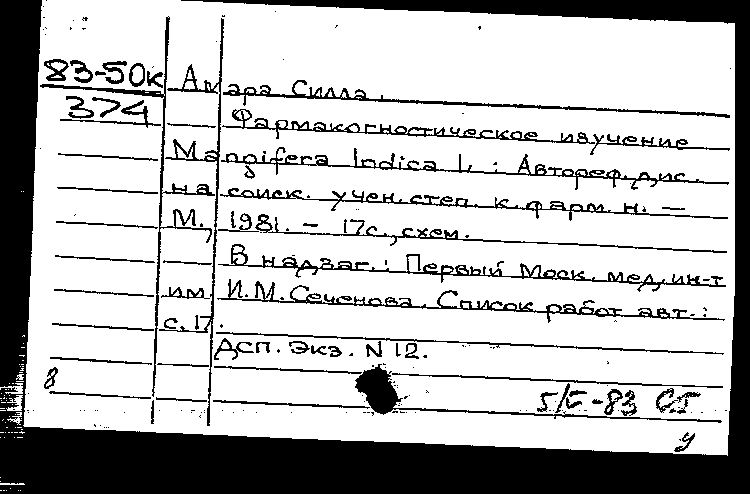 83-50к Амара Силла.
374 Фармакогностическое изучение
Mangifera Indica L. : Автореф. дис.
на соиск. учен. степ. к. фарм. н. —
М., 1981. — 17с., схем.
В надзаг.: Первый Моск. мед. ин-т
им И.М. Сеченова. Список работ авт.:
с. 17.
ДСП. Экз. N 12.
8
у